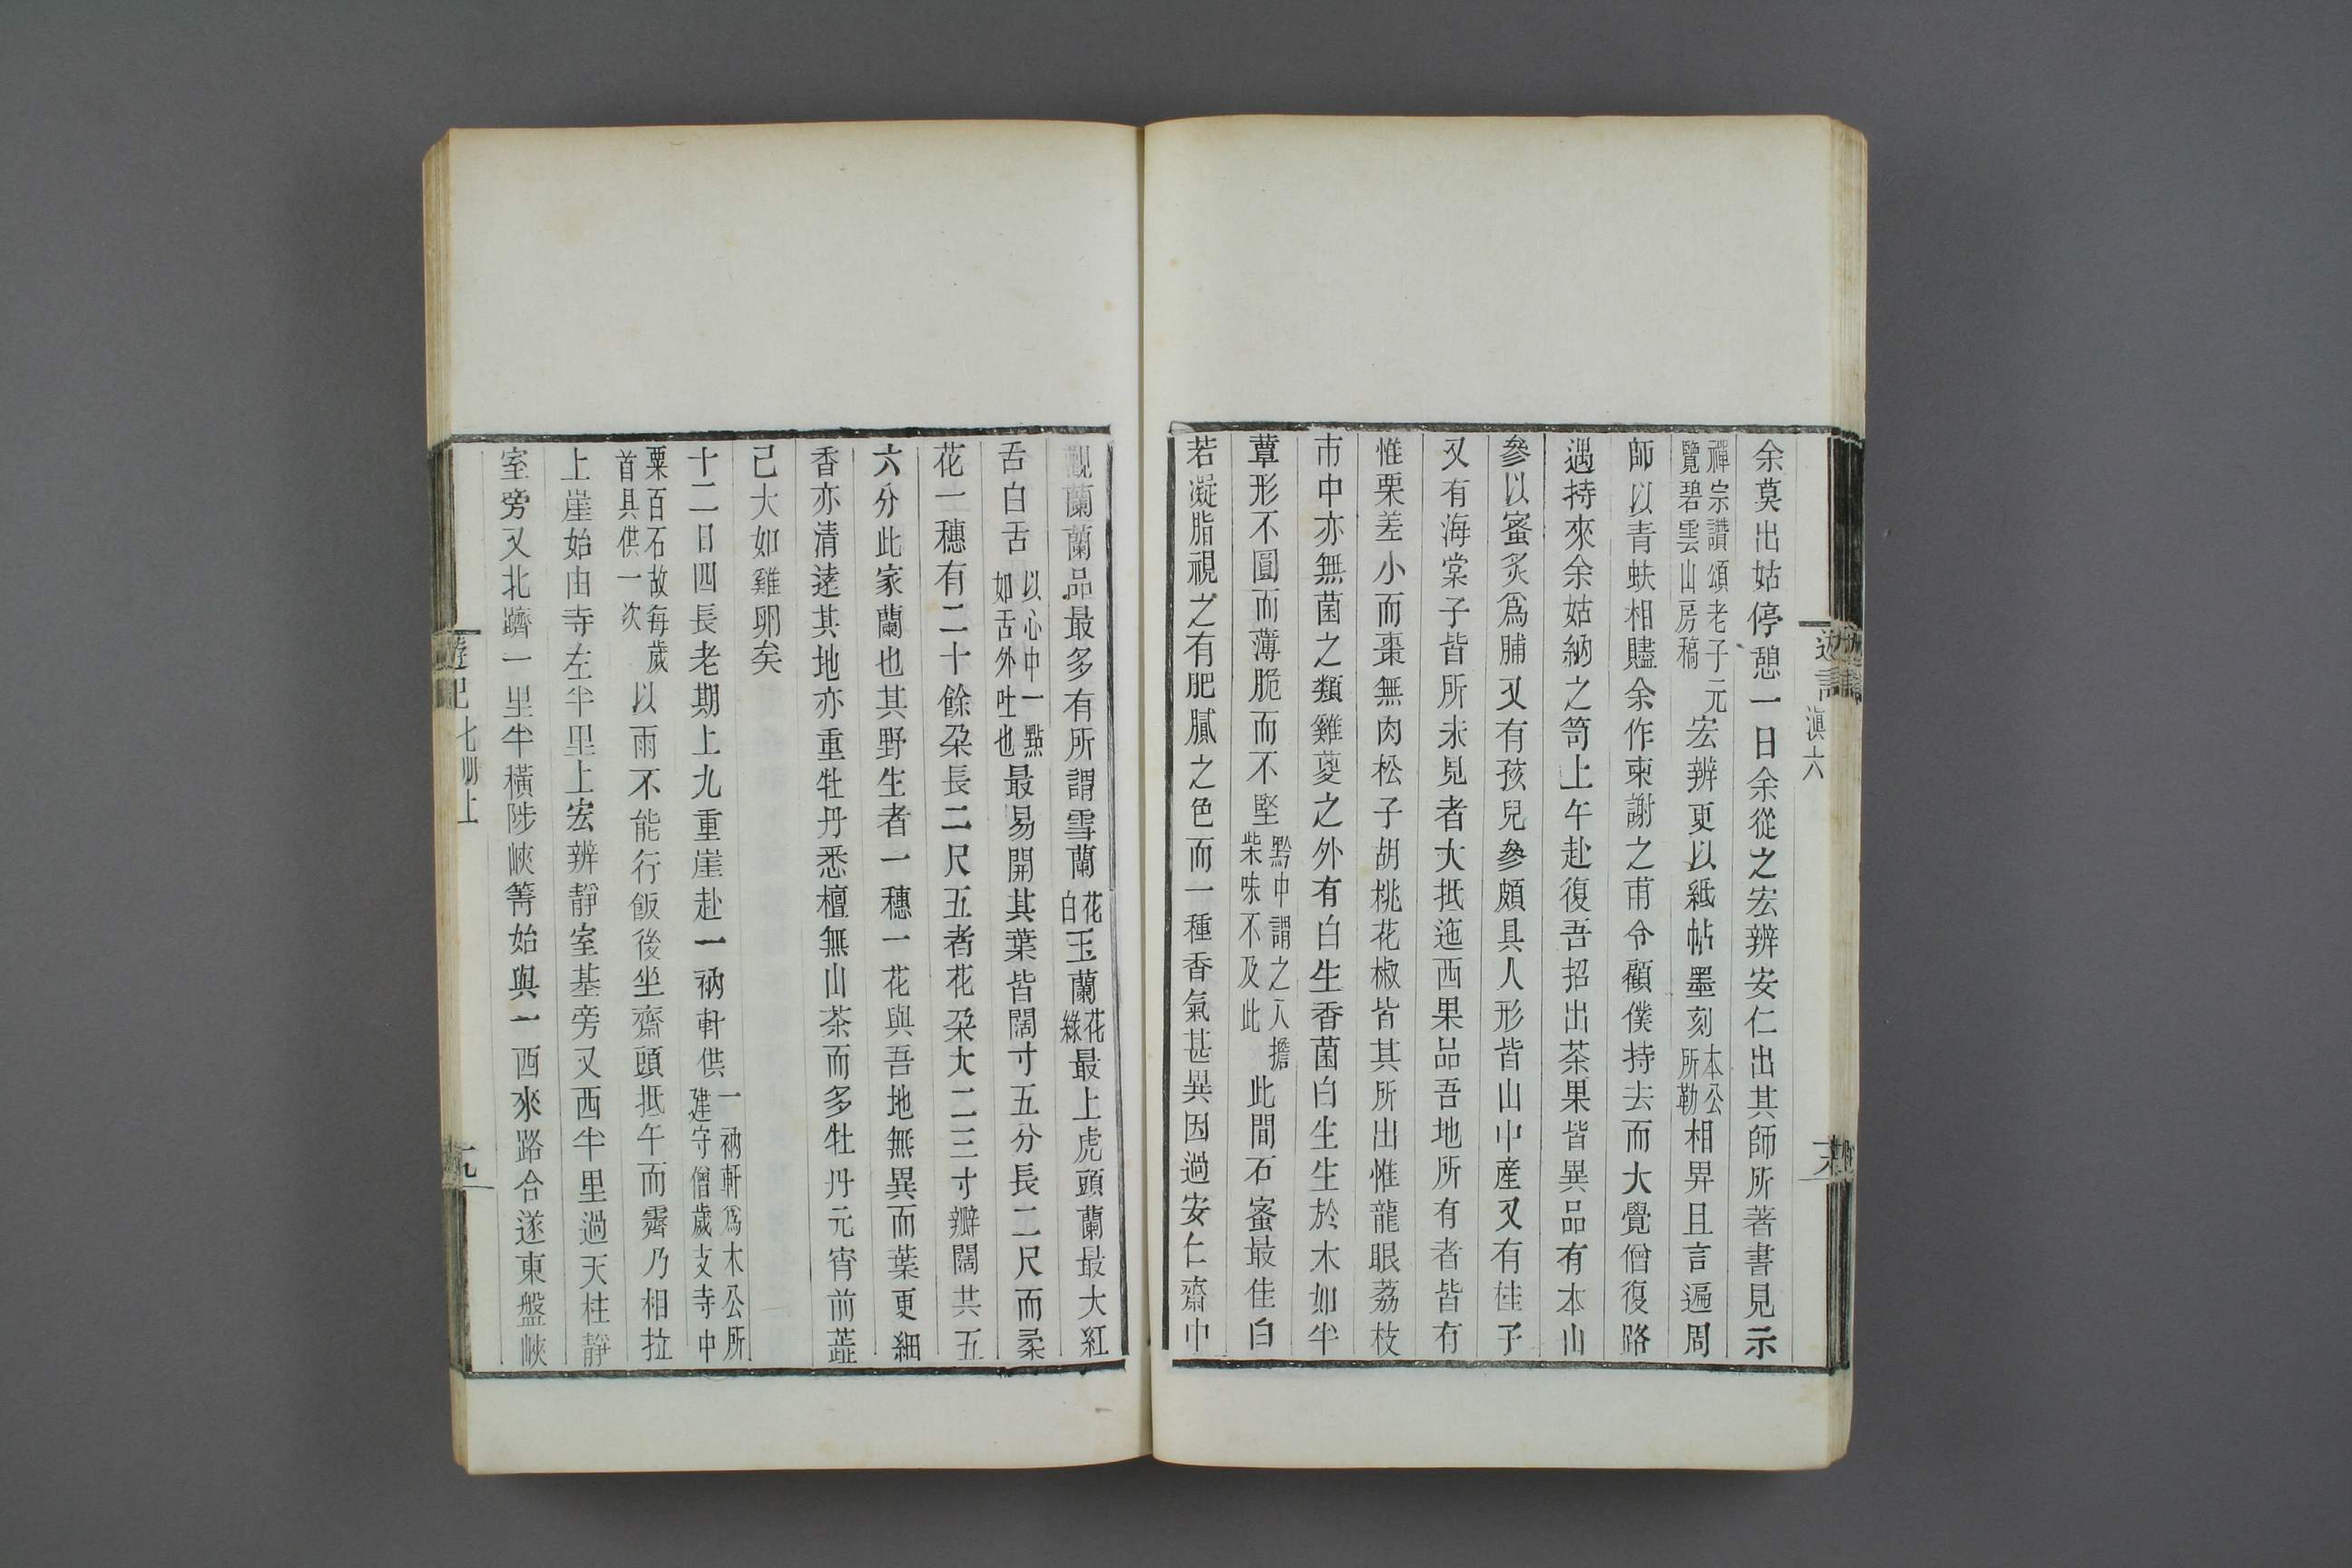 滇六
余莫出姑停憩一日余從之宏辨安仁出其師所著書見示
禪宗讚頌老子元覽碧雲山房稿宏辨更以紙帖墨刻本公所勒相畀且言遍周
師以青蚨相贐余作柬謝之甫令顧僕持去而大覺僧復路
遇持來余姑納之笥上午赴復吾招出茶果皆異品有本山
參以蜜炙爲脯又有孩兒參頗具人形皆山中產又有桂子
又有海棠子皆所未見者大抵迤西果品吾地所有者皆有
惟栗差小而棗無肉松子胡桃花椒皆其所出惟龍眼荔枝
市中亦無菌之類雞葼之外有白生香菌白生生於木如半
蕈形不圓而薄脆而不堅黔中謂之八擔柴味不及此此間石蜜最佳白
若凝脂視之有肥膩之色而一種香氣甚異因過安仁齋中
觀蘭蘭品最多有所謂雪蘭花白玉蘭花綠最上虎頭蘭最大紅
舌白舌以心中一點如舌外吐也最易開其葉皆闊寸五分長二尺而柔
花一穗有二十餘朶長二尺五者花朶大二三寸瓣闊共五
六分此家蘭也其野生者一穗一花與吾地無異而葉更細
香亦清遠其地亦重牡丹悉檀無山茶而多牡丹元宵前蕋
己大如雞卵矣
十二日四長老期上九重崖赴一衲軒供一衲軒爲木公所建守僧歲支寺中
粟百石故每歲首具供一次以雨不能行飯後坐齋頭抵午而霽乃相拉
上崖始由寺左半里上宏辨靜室基旁又西半里過天柱靜
室旁又北躋一里半橫陟峽箐始與一西來路合遂東盤峽
遊記七冊上